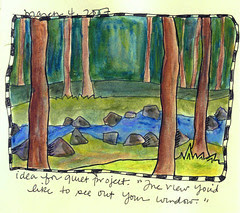 March 4, 2005
idea for quiet project: "The view you'd
like to see out your window."